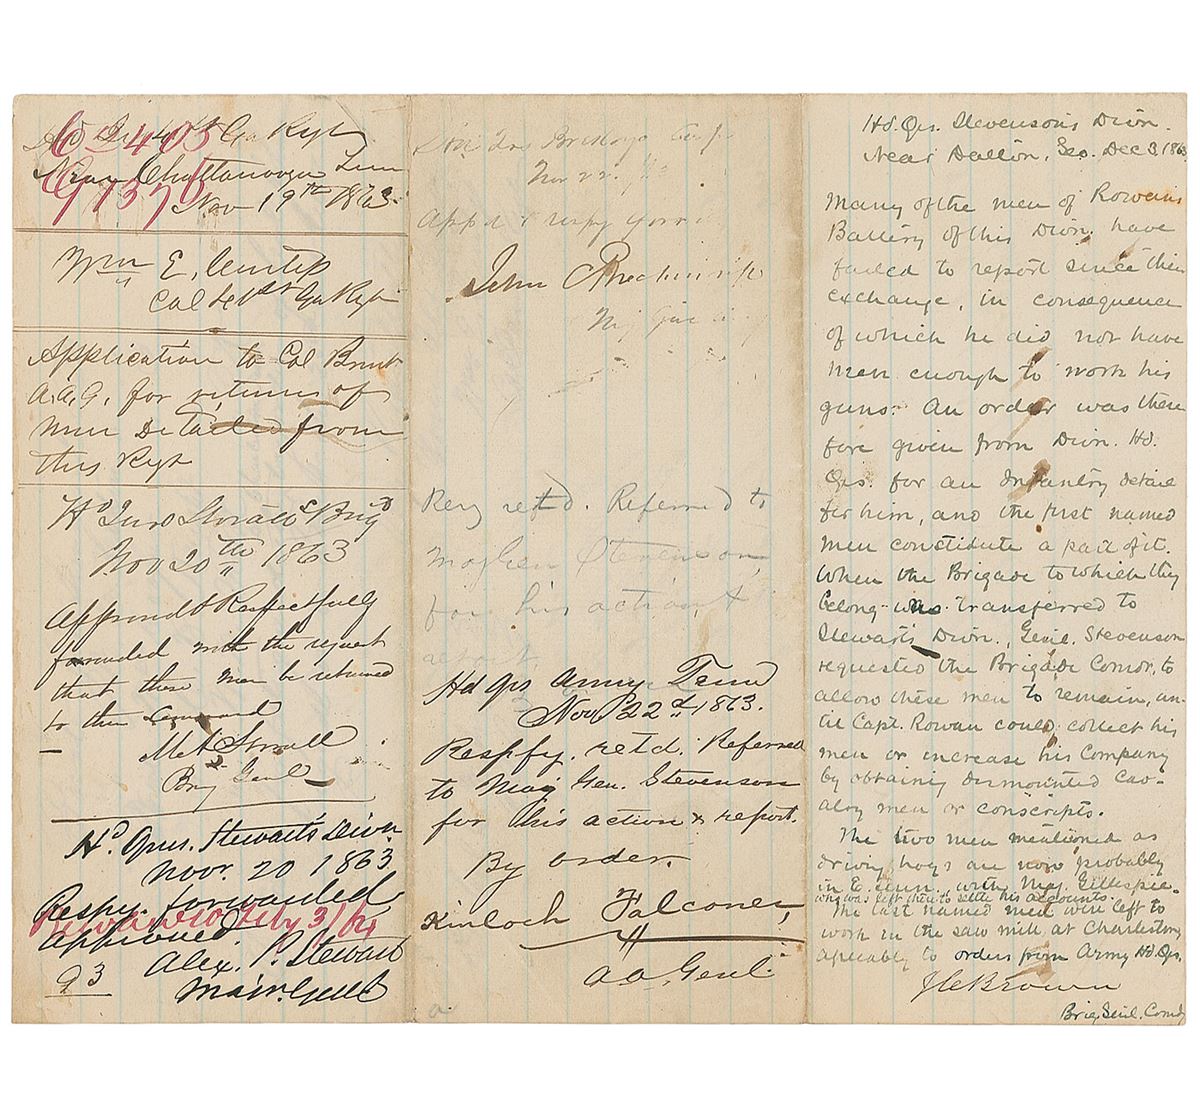 Hd Qrs 41st Ga Regt
C 2403
Near Chattanooga Tenn
G 1376
Nov 19th 1863.
Wm E. Curtiss
Col 41st Ga Regt
Application to Col Brent
A.A.G. for returns of
men Detailed from
this Regt
Hd Qurs Stovalls Brigd
Nov 20th 1863
Approved & Respectfully
forwarded with the request
that these men be returned
to their Command
M A Stovall
Brig Genl
Hd. Qrs. Stewarts Divn.
Nov. 20 1863
Respy. forwarded
Feby 3/64
approved.
Alex. P. Stewart
93
Maj. Genl
Hd Qrs Breckgs Corps
Nov 22 /63
App d & respy forwd
John C Breckinridge
Mj Gen
Resy retd. Referred to
Maj Gen Stevenson,
for his action &
report.
Hd Qrs Army Tenn
Nov 22d 1863.
Respfy. retd. Referred
to Maj Gen. Stevenson
for his action & report.
By order.
Kinloch Falconer,
a a Genl.
a.
Hd. Qrs. Stevenson's Divn.
Near Dalton, Geo. Dec 3, 1863
Many of the men of Rowan's
Battery of this Divn. have
failed to report since their
exchange, in consequence
of which he did not have
men enough to work his
guns. An order was there
fore given from Divn. Hd.
Qrs. for an Infantry detail
for him, and the first named
men constitute a part of it.
When the Brigade to which they
belong was transferred to
Stewart's Divn., Genl. Stevenson
requested the Brigade Comdr, to
allow these men to remain, un-
til Capt. Rowan could collect his
men or increase his Company
by obtaining dismounted Cav-
alry men or conscripts.
The two men mentioned as
driving hogs are now probably
in E. Tenn. with Maj. Gillespie.
who was left there to settle his accounts.
The last named men were left to
work in the saw mill at Charleston,
agreeably to orders from Army Hd. Qrs.
J C Brown
Brig. Genl. Comdg